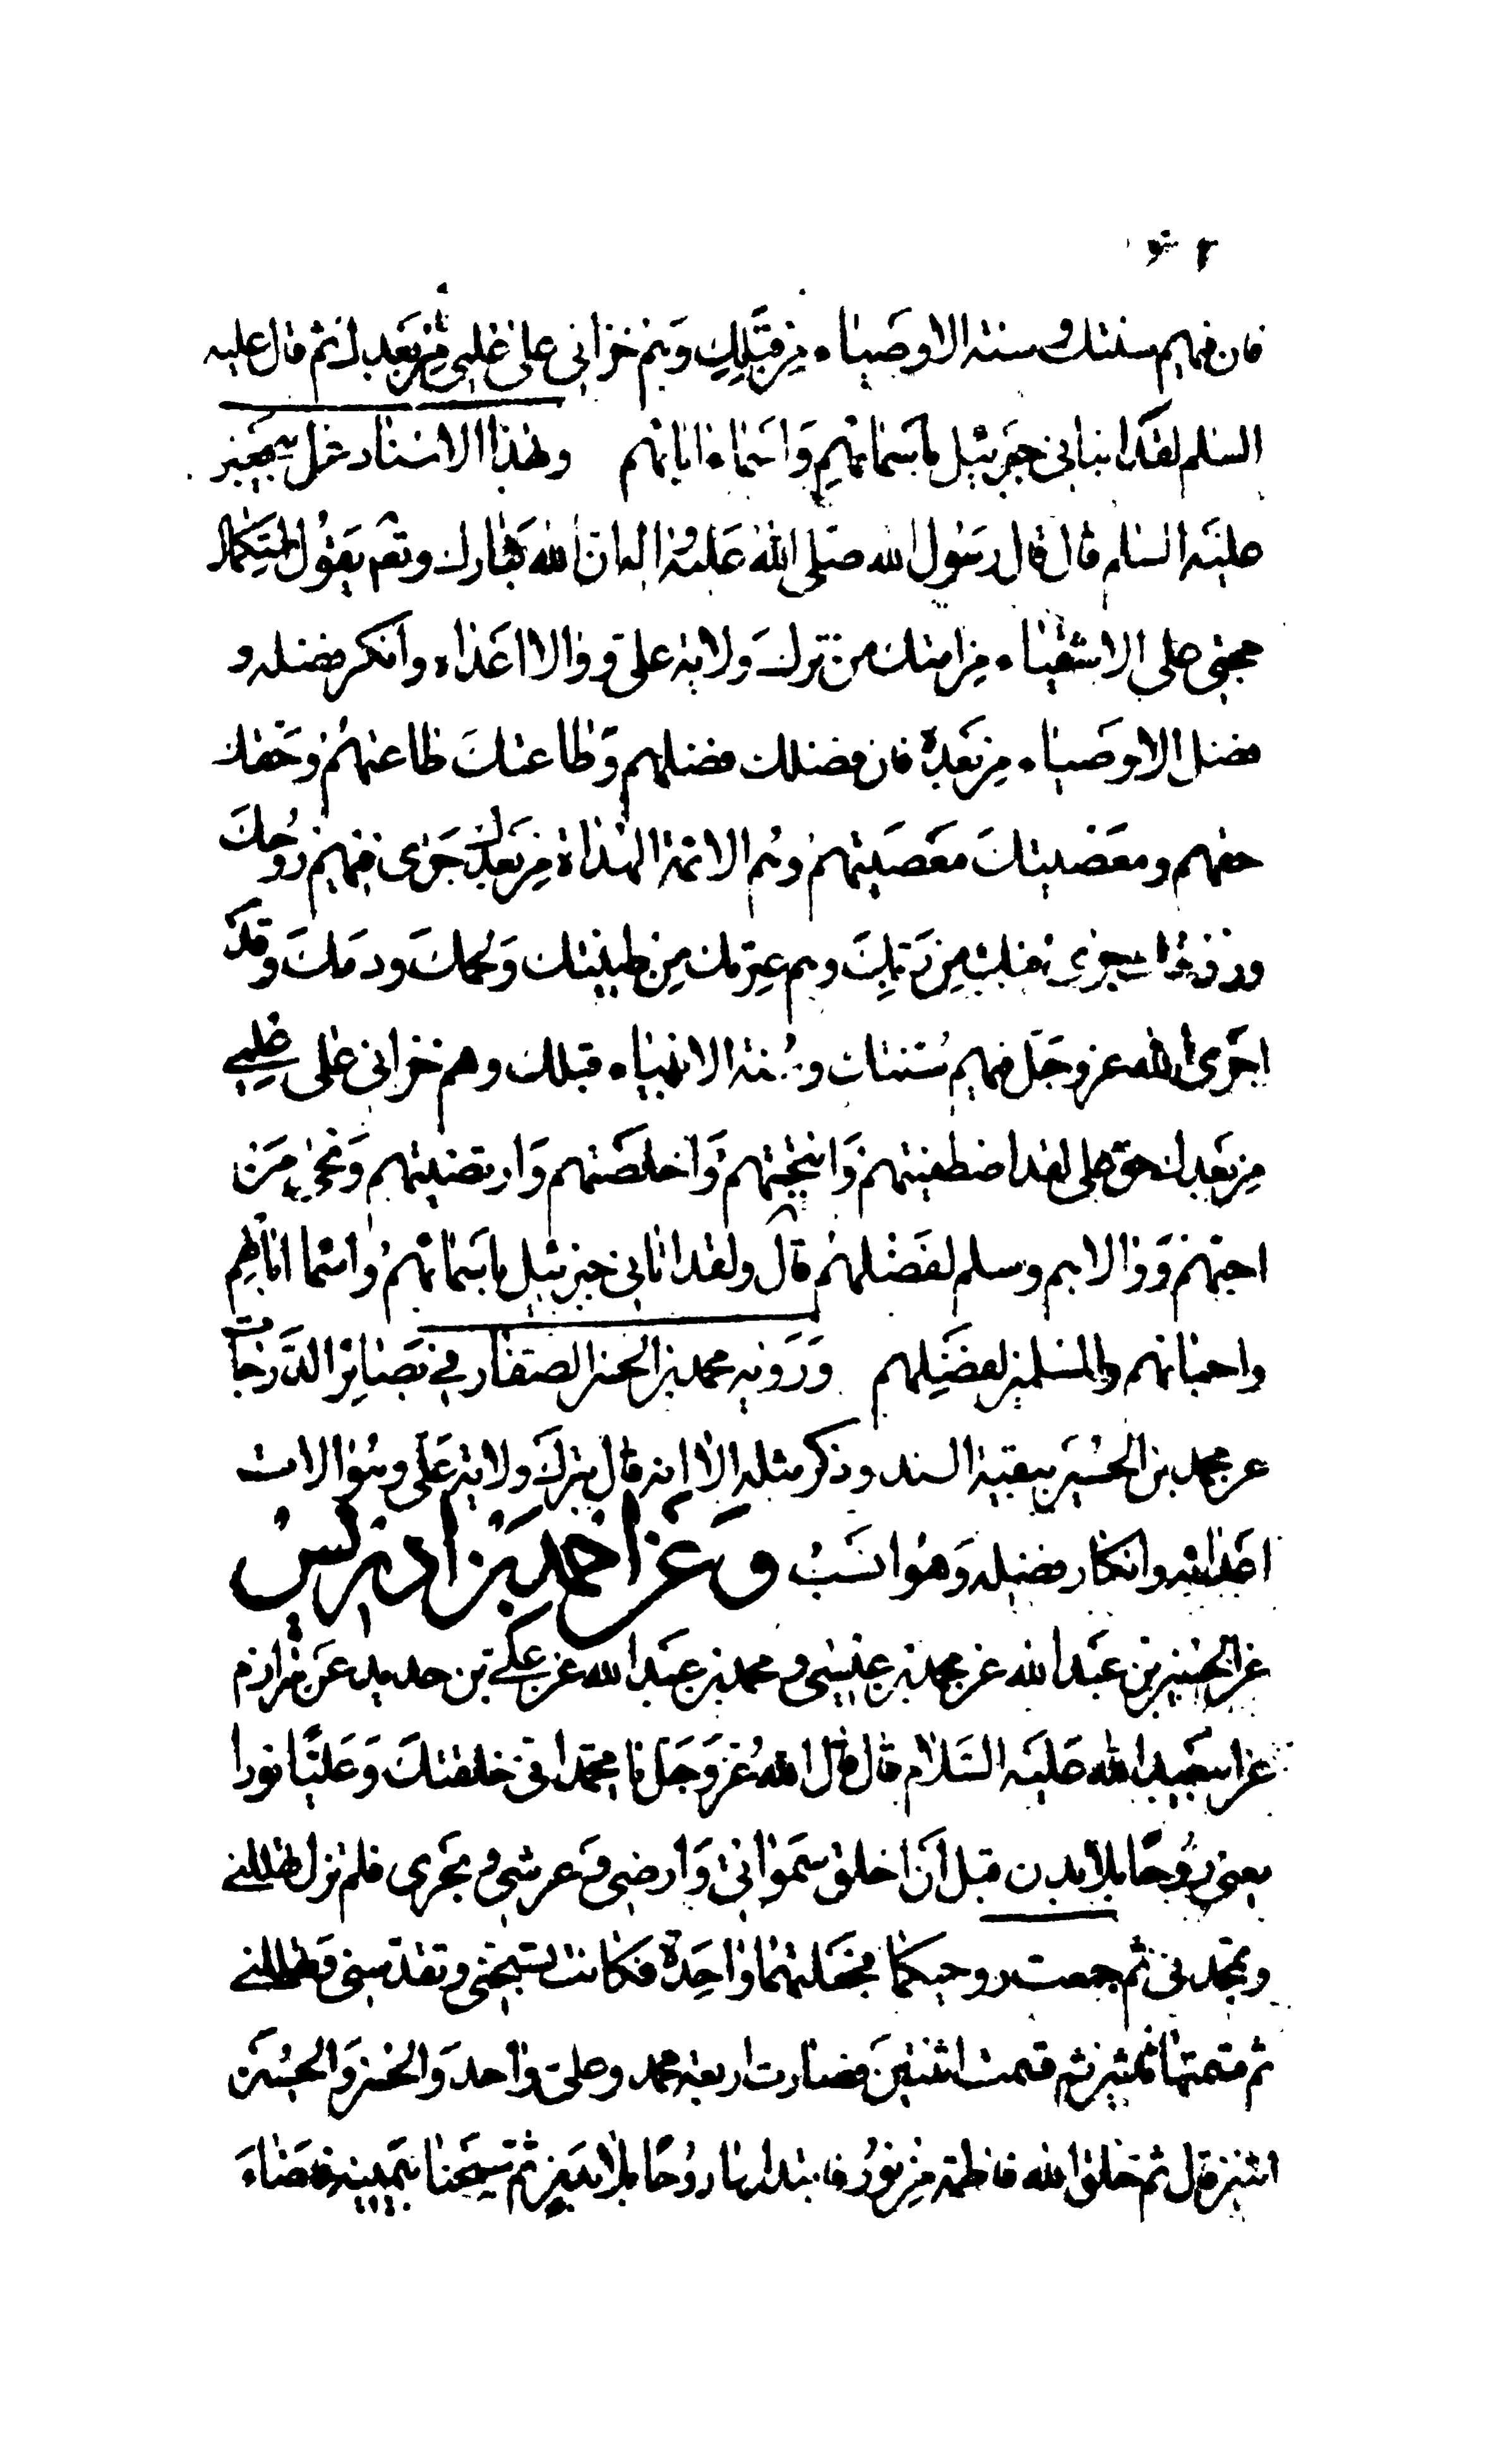 فان فيهم سنتك وسنة الاوصياء من قبلك وهم خزاني على علمي من بعدك ثم قال عليه
السلم لقد انباني جبرئيل باسمائهم واسماء ابائهم وبهذا الاسناد عن ابي جعفر
عليه السلم قال قال رسول الله صلى الله عليه واله ان الله تبارك وتعم يقول استكمال
حجتي على الاشقياء من امتك من ترك ولاية علي ووالا اعداه وانكر فضله و
فضل الاوصياء من بعده فان فضلك فضلهم وطاعتك طاعتهم وحقك
حقهم ومعصيتك معصيتهم وهم الائمة الهداة من بعدك جرى فيهم روحك
وروحك جرى فيك من ربك وهم عترتك من طينتك ولحمك ودمك وقد
اجرى الله عز وجل فيهم سنتك وسنة الانبياء قبلك وهم خزاني على علمي
من بعدك حق علي لقد اصطفيتهم وانتجبتهم واخلصتهم وارتضيتهم ونجى من
احبهم ووالاهم وسلم لفضلهم قال ولقد اتاني جبرئيل باسمائهم واسما ابائهم
واحبائهم والمسلمين لفضلهم ورويه محمد بن الحسن الصفار في بصائر الدرجات
عن محمد بن الحسين ببقية السند وذكر مثله الا انه قال بترك ولاية علي وموالات
اعدائه وانكار فضله وهو انسب وعن احمد بن ادريس
عن الحسين بن عبد الله عن محمد بن عيسى ومحمد بن عبد الله عن علي بن حديد عن مرازم
عن ابي عبد الله عليه السلام قال قال الله عز وجل يا محمد اني خلقتك وعليا نورا
يعني روحا بلا بدن قبل ان اخلق سمواتي وارضي وعرشي وبحري فلم تزل تهللني
وتمجدني ثم جمعت روحيكما فجعلتهما واحدة فكانت تسبحني وتقدسني وتهللني
ثم قسمتها ثنتين ثم قسمت اثنتين فصارت اربعة محمد وعلي واحد والحسن والحسين
اثنين قال ثم خلق الله فاطمة من نور ابتداها روحا بلا بدن ثم مسحنا بيمينه فضاء